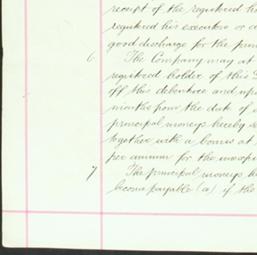 receipt of the registered ho
registered his executors or a
good discharge for the prin
6 The Company may at
registered holder of this D
off this debenture and upo
months from the date of s
principal moneys hereby se
together with a bonus at
per annum for the unexpi
7 The principal moneys he
become payable (a) if the